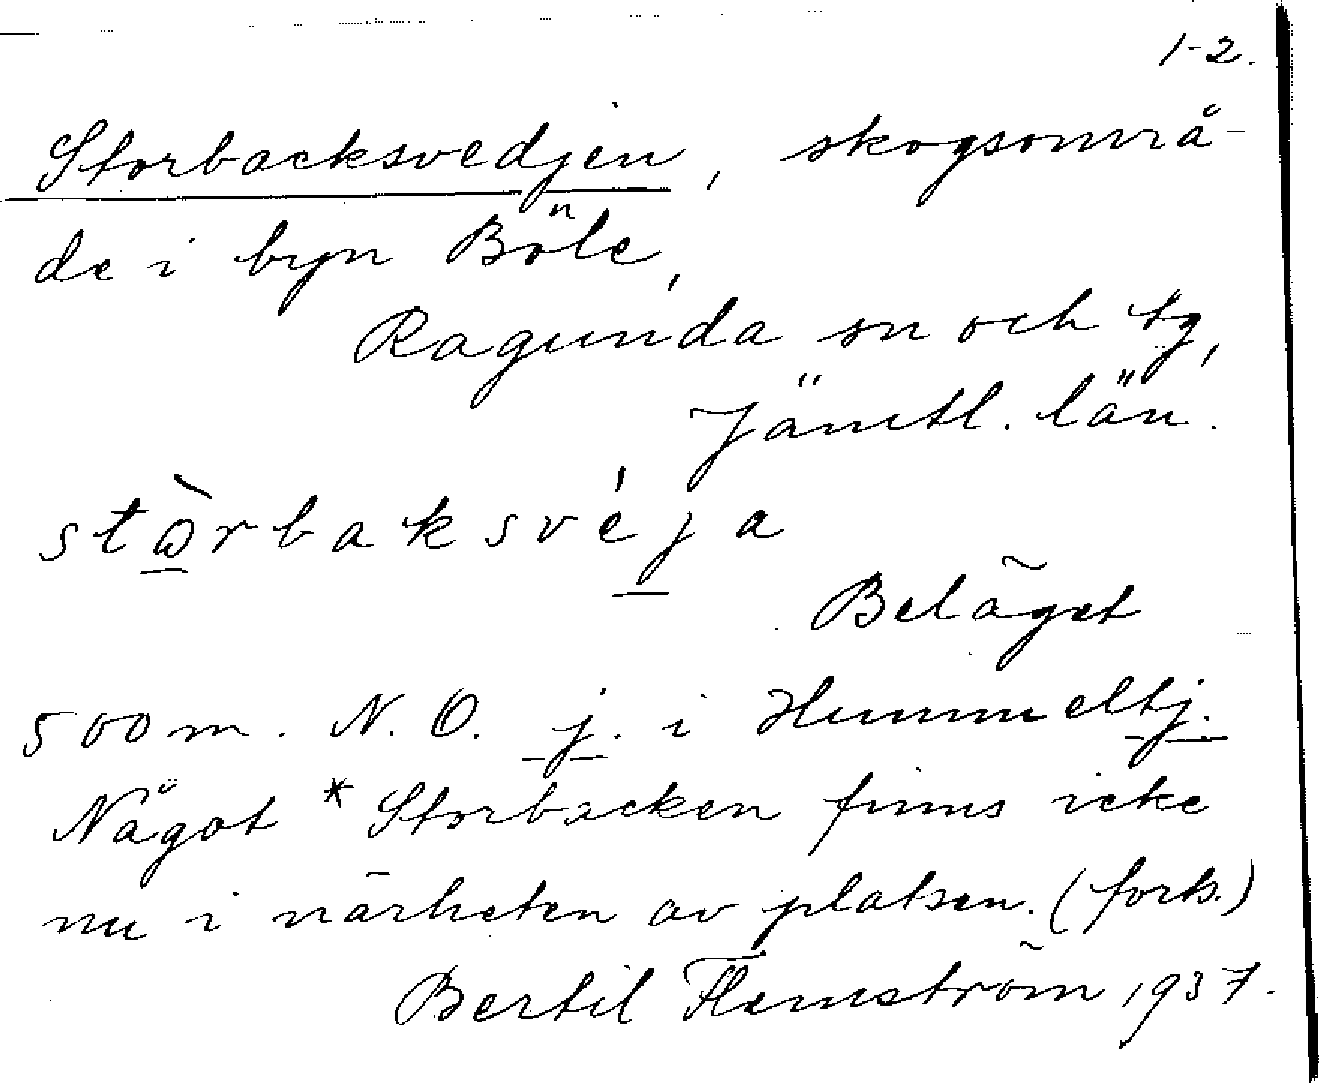 1-2.
Storbacksvedjen, skogsområ-
de i byn Böle,
Ragunda sn och tg,
Jämtl. län.
stòrbaksvéja
Beläget
500 m. N.O. j. i Hummeltj.
Något *Storbacken finns icke
nu i närheten av platsen. (forts.)
Bertil Flemström 1937.